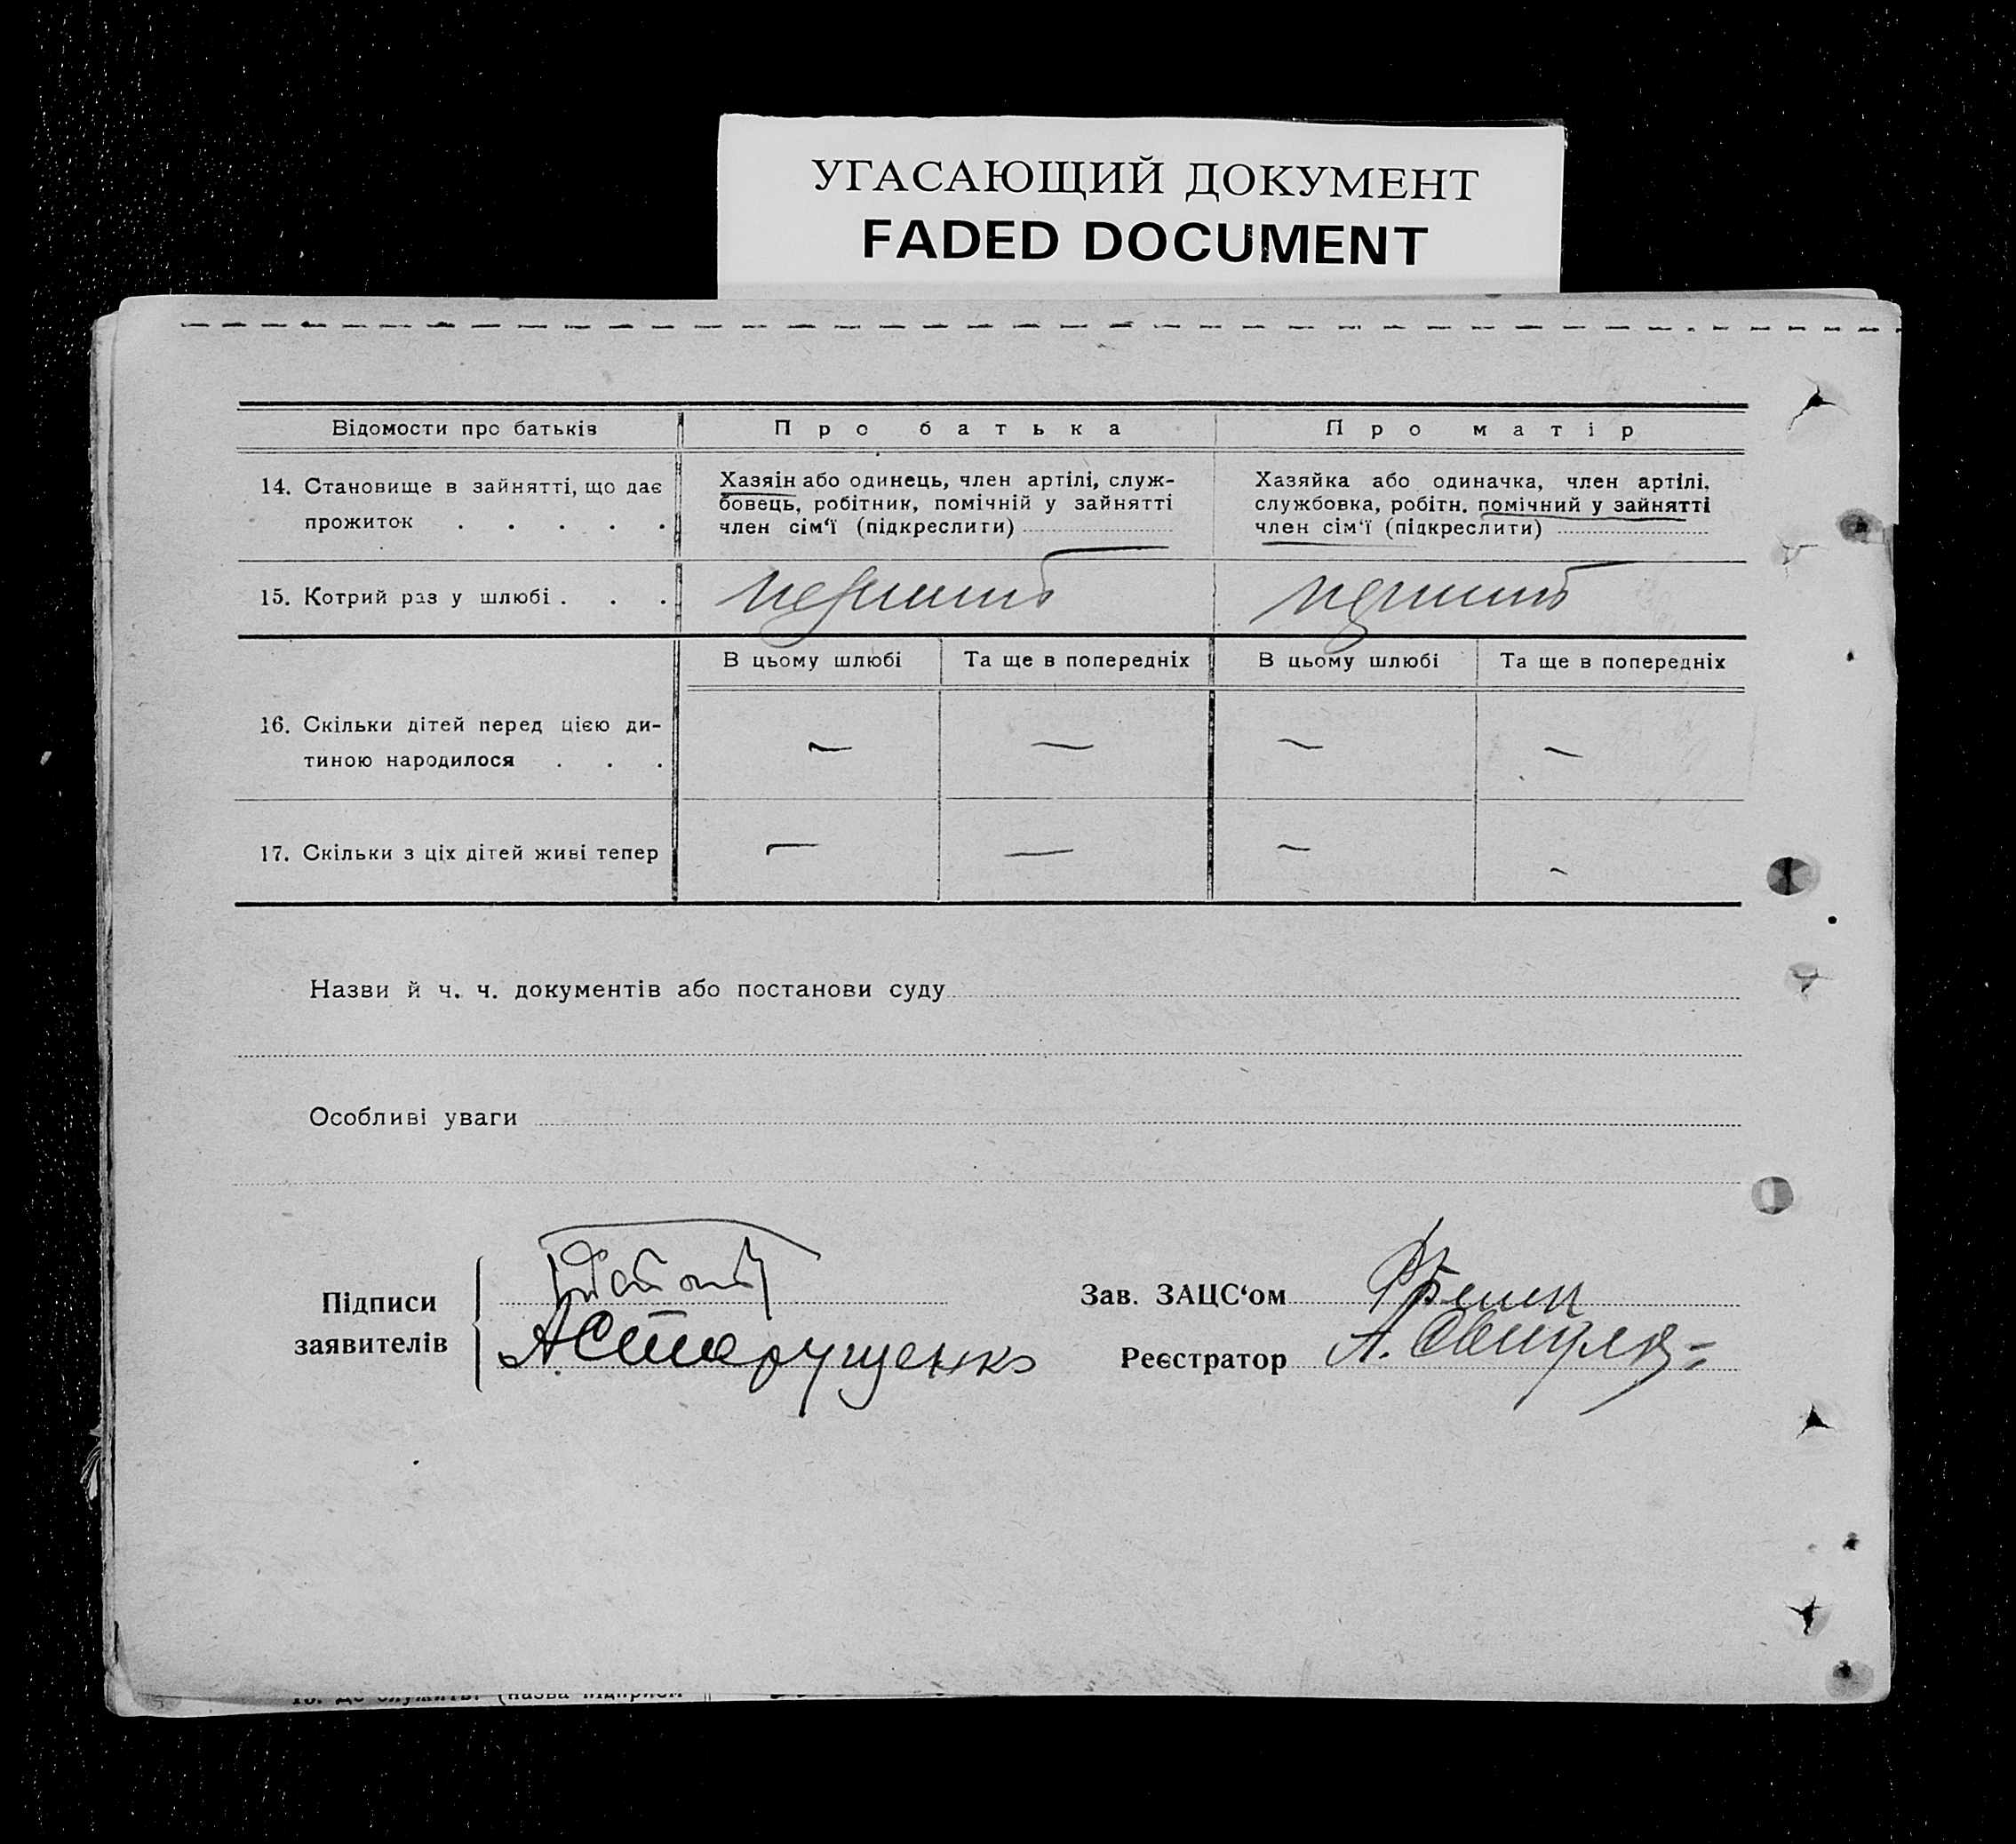 УГАСАЮЩИЙ ДОКУМЕНТ
FADED DOCUMENT
Відомости про батьків
Про батька
Про матір
14. Становище в зайнятті, що дає
прожиток . . . . .
Хазяін або одинець, член артілі, служ-
бовець, робітник, помічній у зайнятті
член сім'ї (підкреслити)
Хазяйка або одиначка, член артілі,
службовка, робітн. помічний у зайнятті
член сім'ї (підкреслити)
15. Котрий раз у шлюбі . . .
перший
перший
В цьому шлюбі
Та ще в попередніх
В цьому шлюбі
Та ще в попередніх
16. Скільки дітей перед цією ди-
тиною народилося . . .
— — — —
17. Скільки з ціх дітей живі тепер
— — — —
Назви й ч. ч. документів або постанови суду
Особливі уваги
Підписи
заявителів
АСтарущенко
Зав. ЗАЦС'ом
Реєстратор
А.
18. Де служить: (назва підприєм